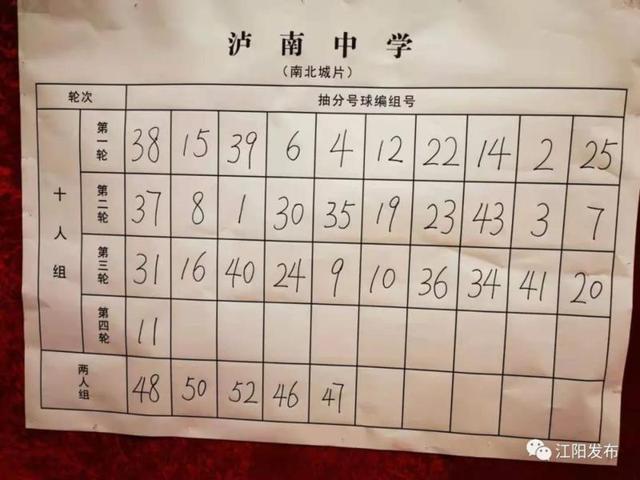 泸南中学
（南北城片）
轮次 抽分号球编组号
十人组
第一轮 38 15 39 6 4 12 22 14 2 25
第二轮 37 8 1 30 35 19 23 43 3 7
第三轮 31 16 40 24 9 10 36 34 41 20
第四轮 11
两人组 48 50 52 46 47
江阳发布